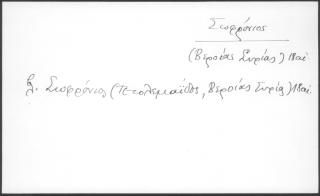 Σωφρόνιος
(Βεροίας Συρίας) 18αι
βλ. Σωφρόνιος (Πτολεμαΐδος, Βεροίας Συρίας) 18αι.